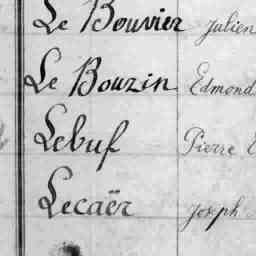 Le Bouvier Julien
Le Bouzin Edmond
Lebuf Pierre
Lecaër Joseph